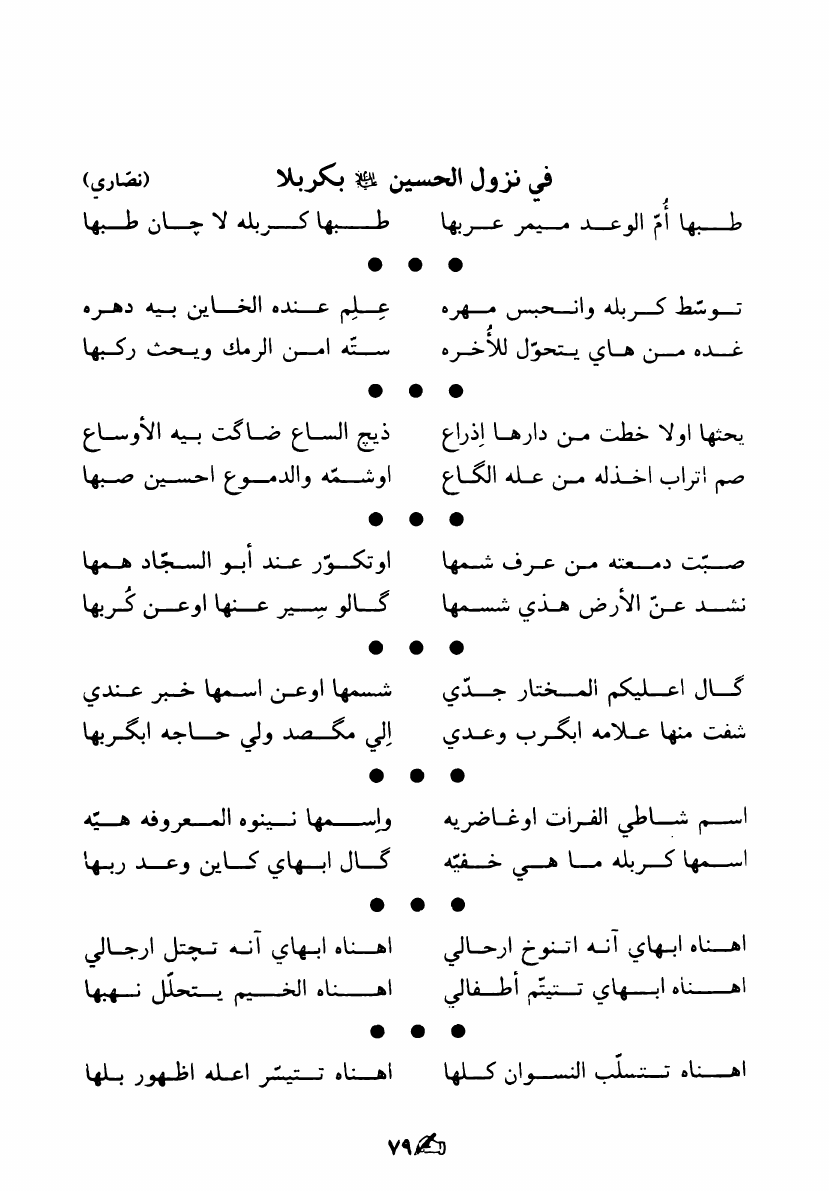 في نزول الحسين عليه السلام بكربلا (نصّاري)
طبها أُمّ الوعد ميمر عربها طبها كربله لا چان طبها
● ● ●
توسّط كربله وانحبس مهره عِلِم عنده الخاين بيه دهره
غده من هاي يتحوّل للأُخره ستّه امن الرمك ويحث ركبها
● ● ●
يحثها اولا خطت من دارها إذراع ذيچ الساع ضاگت بيه الأوساع
صم اتراب اخذله من عله الگاع اوشمّه والدموع احسين صبها
● ● ●
صبّت دمعته من عرف شمها اوتكوّر عند أبو السجّاد همها
نشد عنّ الأرض هذي شسمها گالو سِير عنها اوعن كُربها
● ● ●
گال اعليكم المختار جدّي شسمها اوعن اسمها خبر عندي
شفت منها علامه ابگرب وعدي إلي مگصد ولي حاجه ابگربها
● ● ●
اسم شاطي الفرات اوغاضريه وإسمها نينوه المعروفه هيّه
اسمها كربله ما هي خفيّه گال ابهاي كاين وعد ربها
● ● ●
اهناه ابهاي آنه اتنوخ ارحالي اهناه ابهاي آنه تچتل ارجالي
اهناه ابهاي تتيتّم أطفالي اهناه الخيم يتحلّل نهبها
● ● ●
اهناه تتسلّب النسوان كلها اهناه تتيسّر اعله اظهور بلها
٧٩